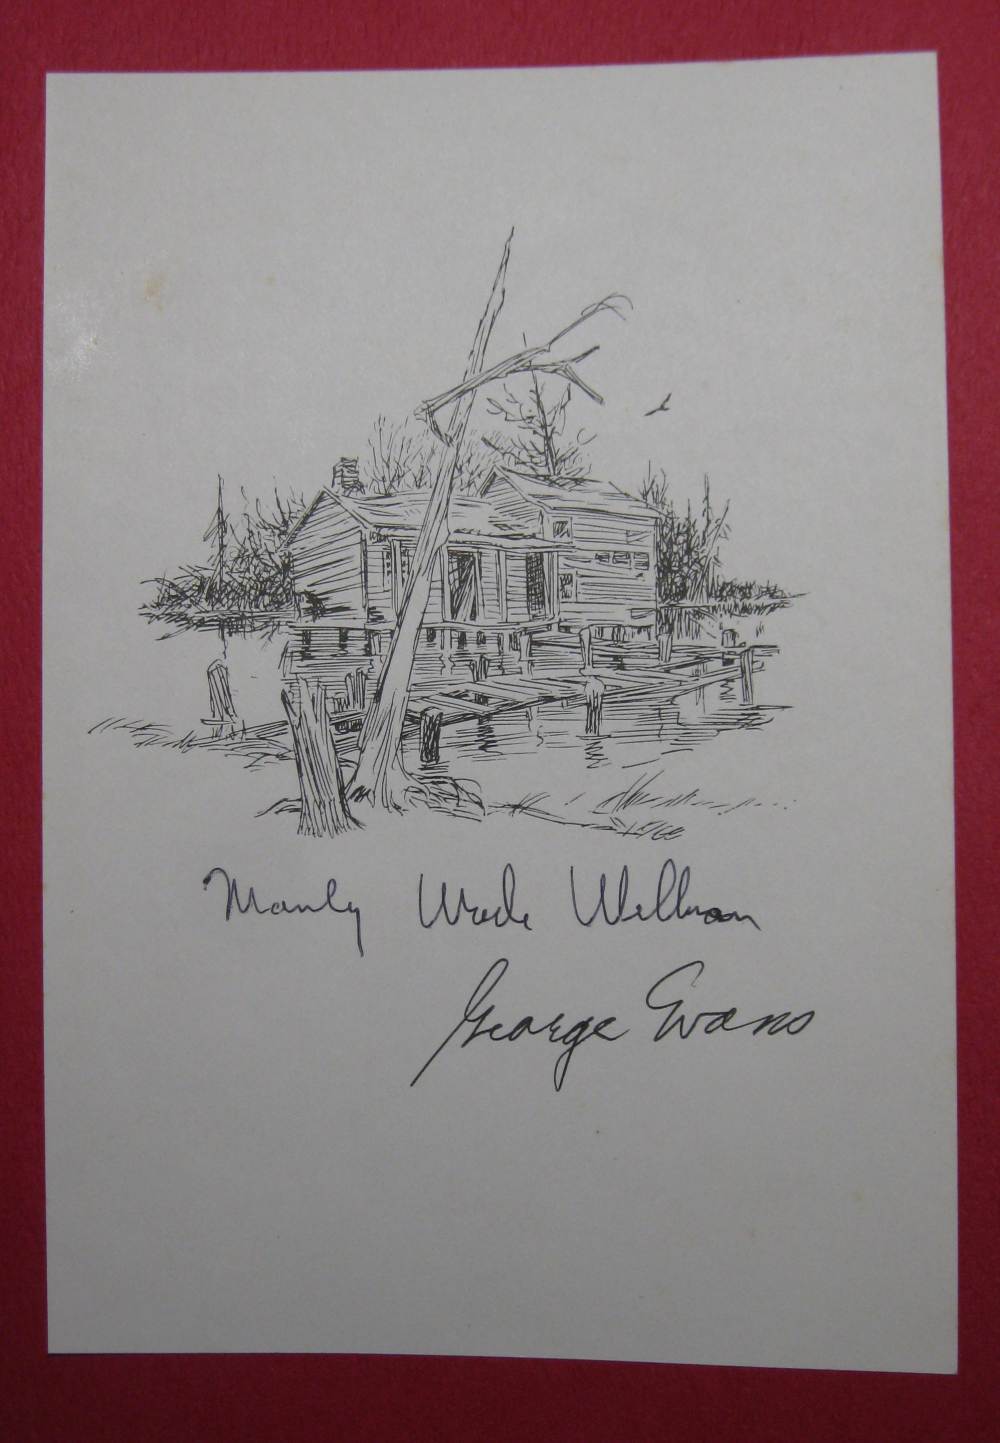 Manly Wade Wellman
George Evans